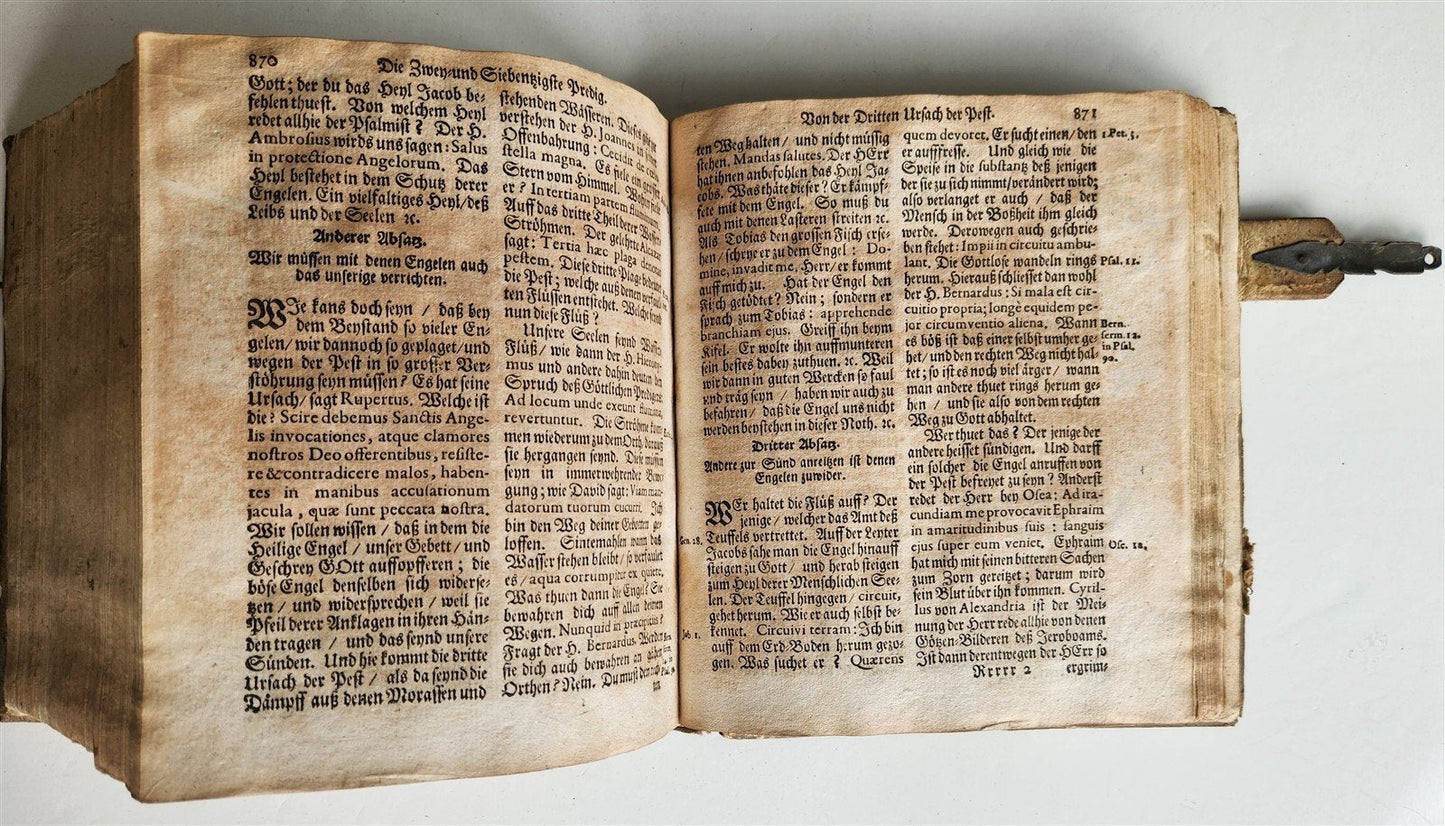 870
Die Zwey-und Siebentzigste Predig.
Gott; der du das Heyl Jacob be-
fehlen thuest. Von welchem Heyl
redet allhie der Psalmist? Der H.
Ambrosius wirds uns sagen: Salus
in protectione Angelorum. Das
Heyl bestehet in dem Schutz derer
Engelen. Ein vielfaltiges Heyl/deß
Leibs und der Seelen ꝛc.
Anderer Absatz.
Wir müssen mit denen Engelen auch
das unserige verrichten.
WJe kans doch seyn / daß bey
dem Beystand so vieler En-
gelen/ wir dannoch so geplaget/und
wegen der Pest in so grosser Ver-
stöhrung seyn müssen? Es hat seine
Ursach/ sagt Rupertus. Welche ist
die? Scire debemus Sanctis Ange-
lis invocationes, atque clamores
nostros Deo offerentibus, resiste-
re & contradicere malos, haben-
tes in manibus accusationum
jacula, quæ sunt peccata nostra.
Wir sollen wissen / daß in dem die
Heilige Engel / unser Gebett / und
Geschrey GOtt auffopfferen; die
böse Engel denselben sich widerse-
tzen / und widersprechen / weil sie
Pfeil derer Anklagen in ihren Hän-
den tragen / und das seynd unsere
Sünden. Und hie kommt die dritte
Ursach der Pest / als da seynd die
Dämpff auß denen Morassen und
stehenden Wässeren.
verstehen der H. Joannes in
Offenbahrung: Cecidit de
stella magna. Es fiele ein grosser
Stern vom Himmel.
er? In tertiam partem
Auff das dritte Theil derer
Ströhmen. Der gelehrte
sagt: Tertia hæc plaga
pestem. Diese dritte Plage
die Pest; welche auß denen
ten Flüssen entstehet. Welche
nun diese Flüß?
Unsere Seelen seynd
Flüß/ wie dann der H. Hierony-
mus und andere dahin deuten den
Spruch deß Göttlichen
Ad locum unde exeunt flumina,
revertuntur. Die Ströhme
men wiederum zu dem Orth,
sie hergangen seynd. Diese müssen
seyn in immerwehrender
gung; wie David sagt: Viam man-
datorum tuorum cucurri. Ich
bin den Weg deiner Gebotten ge-
loffen. Sintemahlen wann das
Wasser stehen bleibt/ so verfaulet
es / aqua corrumpitur ex quiete.
Was thuen dann die Engel? Sie
bewahren dich auff allen deinen
Wegen. Nunquid in præcipitiis?
Fragt der H. Bernardus. Werden
sie dich auch bewahren an
Orthen? Nein. Du must den
Von der Dritten Ursach der Pest.
871
ten Weg halten / und nicht müssig
stehen. Mandas salutes. Der HErr
hat ihnen anbefohlen das Heyl Ja-
cobs. Was thäte dieser? Er kämpf-
fete mit dem Engel. So muß du
auch mit denen Lasteren streiten ꝛc.
Als Tobias den grossen Fisch erse-
hen / schrye er zu dem Engel: Do-
mine, invadit me, Herr/ er kommt
auff mich zu. Hat der Engel den
Fisch getödtet? Nein; sondern er
sprach zum Tobias: apprehende
branchiam ejus. Greiff ihn beym
Kifel. Er wolte ihn auffmunteren
sein bestes dabey zuthuen. ꝛc. Weil
wir dann in guten Wercken so faul
und träg seyn / haben wir auch zu
befahren / daß die Engel uns nicht
werden beystehen in dieser Noth. ꝛc.
Dritter Absatz.
Andere zur Sünd anreitzen ist denen
Engelen zuwider.
WEr haltet die Flüß auff? Der
jenige / welcher das Amt deß
Gen. 28.
Teuffels vertrettet. Auff der Leyter
Jacobs sahe man die Engel hinauff
steigen zu Gott / und herab steigen
zum Heyl derer Menschlichen See-
len. Der Teuffel hingegen / circuit,
gehet herum. Wie er auch selbst be-
Job 1.
kennet. Circuivi terram: Ich bin
auff dem Erd-Boden herum gezo-
gen. Was suchet er? Quærens
quem devoret. Er sucht einen/ den
1 Pet. 5.
er aufffresse. Und gleich wie die
Speise in die substantz deß jenigen
der sie zu sich nimmt/verändert wird;
also verlanget er auch / daß der
Mensch in der Boßheit ihm gleich
werde. Derowegen auch geschrie-
ben stehet: Impii in circuitu ambu-
lant. Die Gottlose wandeln rings
Psal. 11.
herum. Hierauß schliesset dan wohl
der H. Bernardus: Si mala est cir-
cuitio propria; longè equidem pe-
jor circumventio aliena. Wann
Bern.
serm. 12.
in Psal.
90.
es böß ist daß einer selbst umher ge-
het/ und den rechten Weg nicht hal-
tet; so ist es noch viel ärger / wann
man andere thuet rings herum ge-
hen / und sie also von dem rechten
Weg zu Gott abhaltet.
Wer thuet das? Der jenige der
andere heisset sündigen. Und darff
ein solcher die Engel anruffen von
der Pest befreyet zu seyn? Anderst
redet der Herr bey Osea: Ad ira-
cundiam me provocavit Ephraim
in amaritudinibus suis: sanguis
ejus super eum veniet. Ephraim
Ose. 12.
hat mich mit seinen bitteren Sachen
zum Zorn gereitzet; darum wird
sein Blut über ihn kommen. Cyril-
lus von Alexandria ist der Mei-
nung der Herr rede allhie von denen
Götzen-Bilderen deß Jeroboams.
Ist dann derentwegen der HErr so
Rrrrr 2
ergrim-